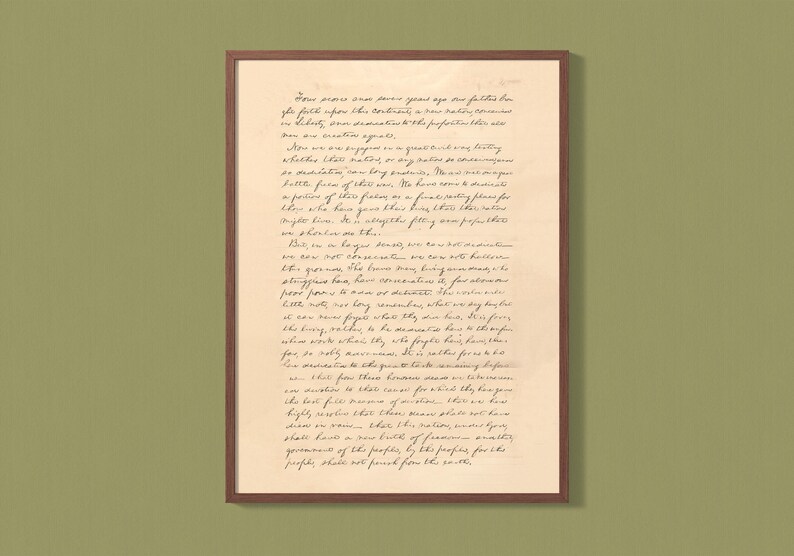 Four score and seven years ago our fathers bro
ght forth upon this continent, a new nation, conceived
in Liberty, and dedicated to the proposition that all
men are created equal.
Now we are engaged in a great civil war, testing
whether that nation, or any nation so conceived, and
so dedicated, can long endure. We are met on a great
battle field of that war. We have come to dedicate
a portion of that field, as a final resting place for
those who here gave their lives, that that nation
might live. It is altogether fitting and proper that
we should do this.
But, in a larger sense, we can not dedicate—
we can not consecrate— we can not hallow—
this ground. The brave men, living and dead, who
struggled here, have consecrated it, far above our
poor power to add or detract. The world will
little note, nor long remember, what we say here, but
it can never forget what they did here. It is for us,
the living, rather, to be dedicated here to the unfin-
ished work which they who fought here, have, thus
far, so nobly advanced. It is rather for us to be
here dedicated to the great task remaining before
us— that from these honored dead we take increas-
ed devotion to that cause for which they here gave
the last full measure of devotion— that we here
highly resolve that these dead shall not have
died in vain— that this nation, under God,
shall have a new birth of freedom— and that,
government of the people, by the people, for the
people, shall not perish from the earth.